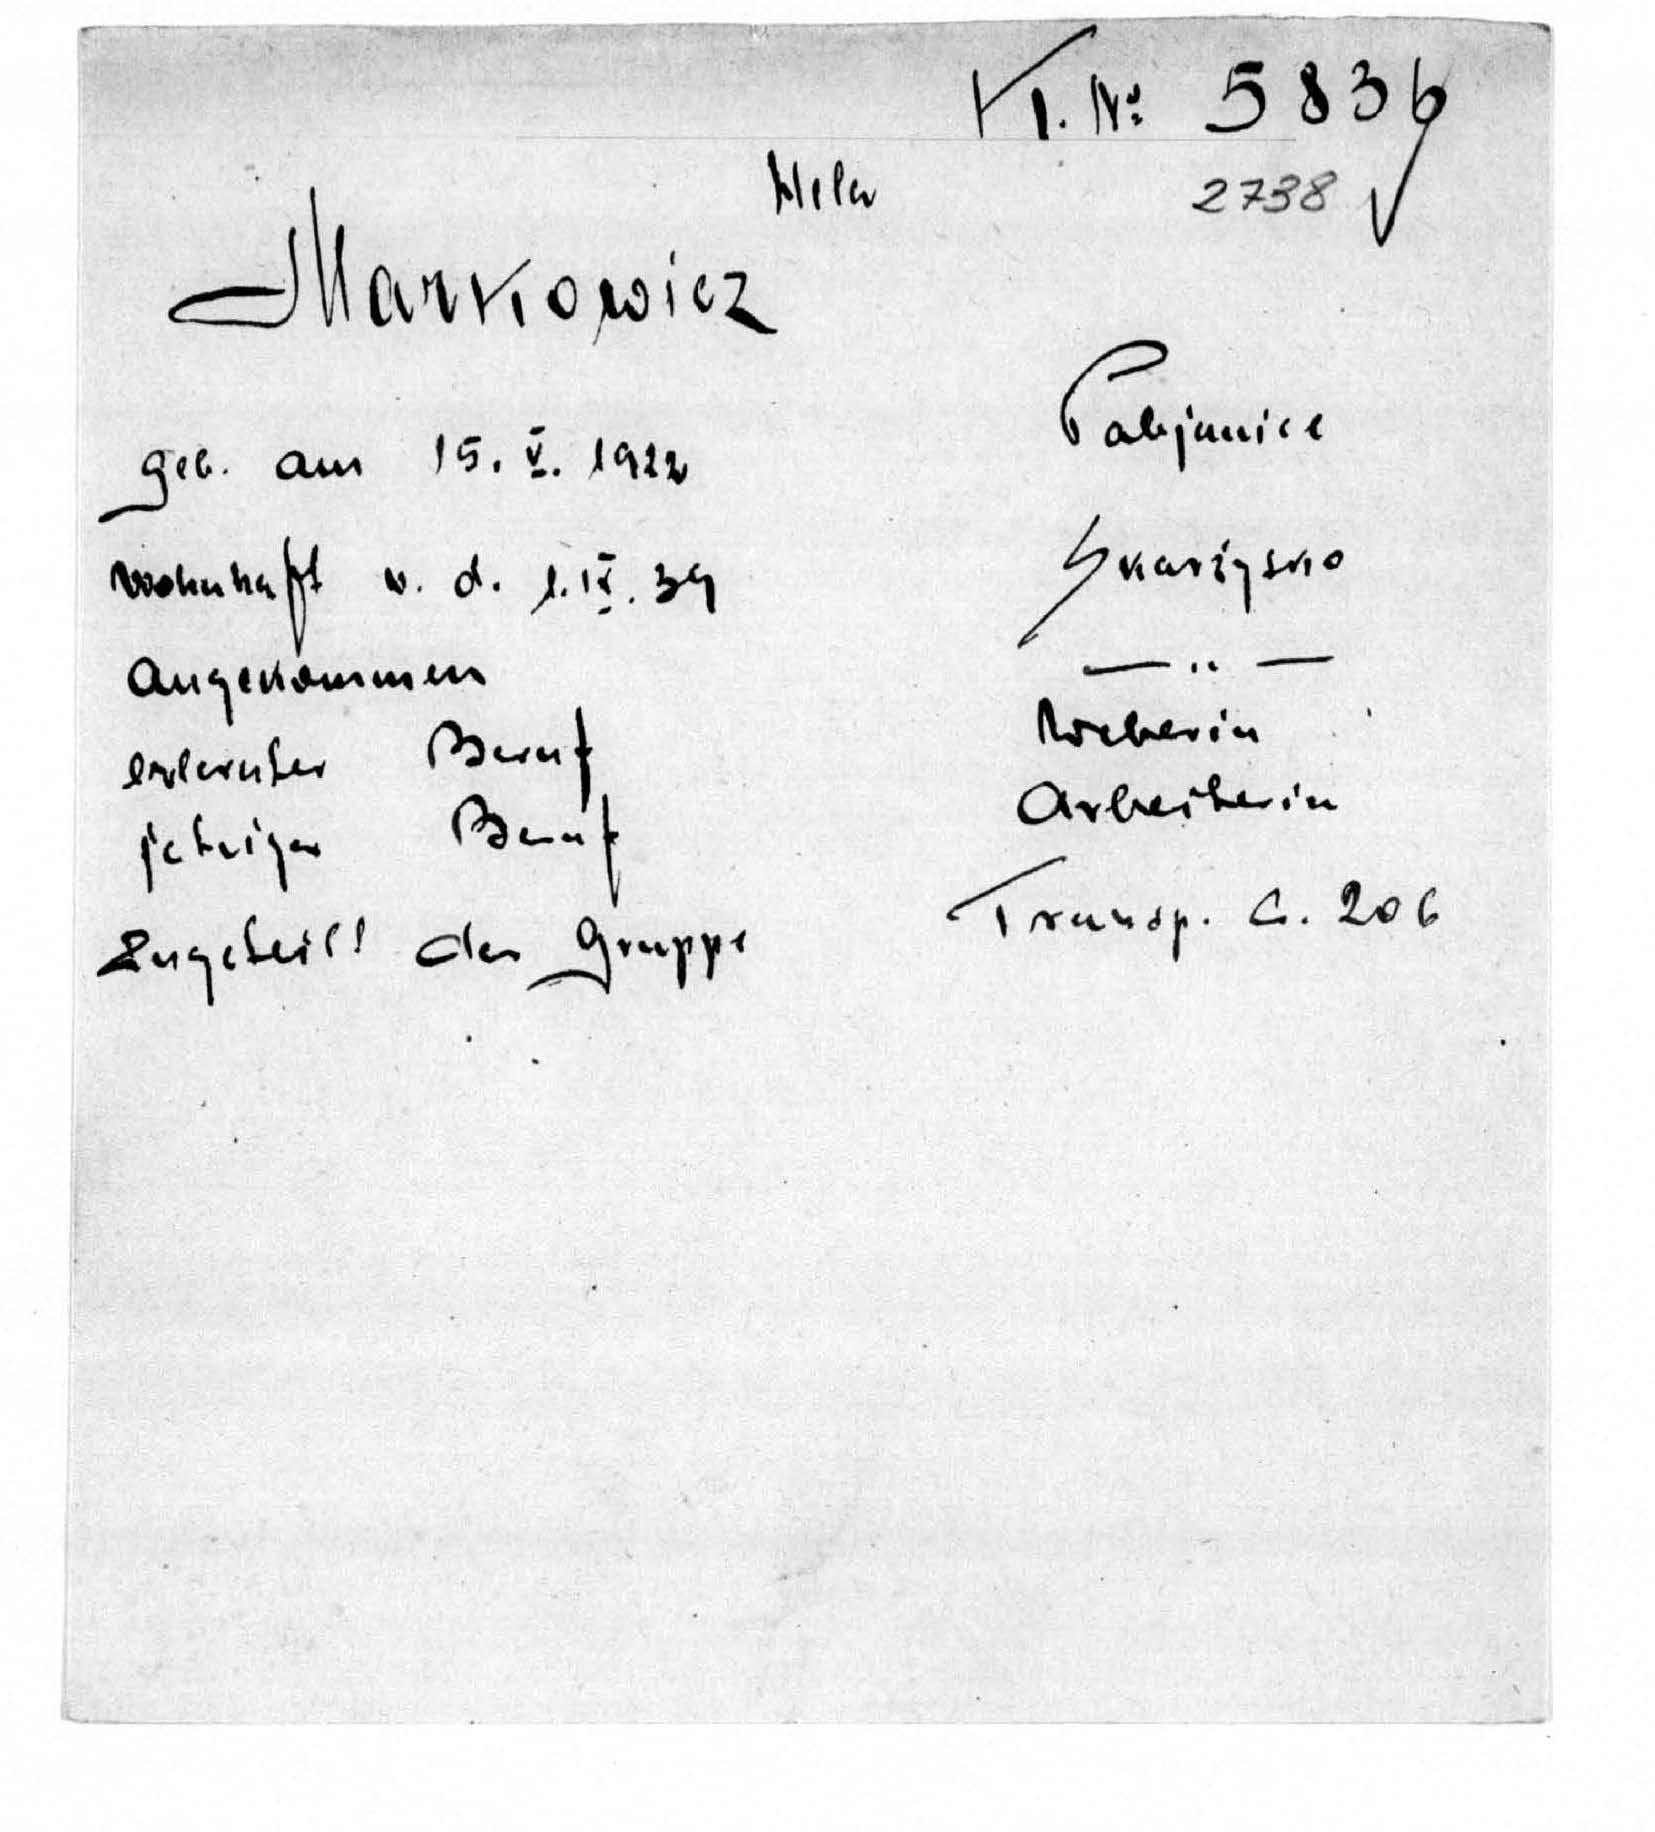 K. Nº 5836
Hela 2738
Markowicz
geb. am 15. V. 1922 Pabjanice
wohnhaft v. d. 1. IX. 39 Skarżysko
Angekommen — " —
erlernter Beruf Weberin
jetziger Beruf Arbeiterin
Zugeteilt der Gruppe Transp. C. 206